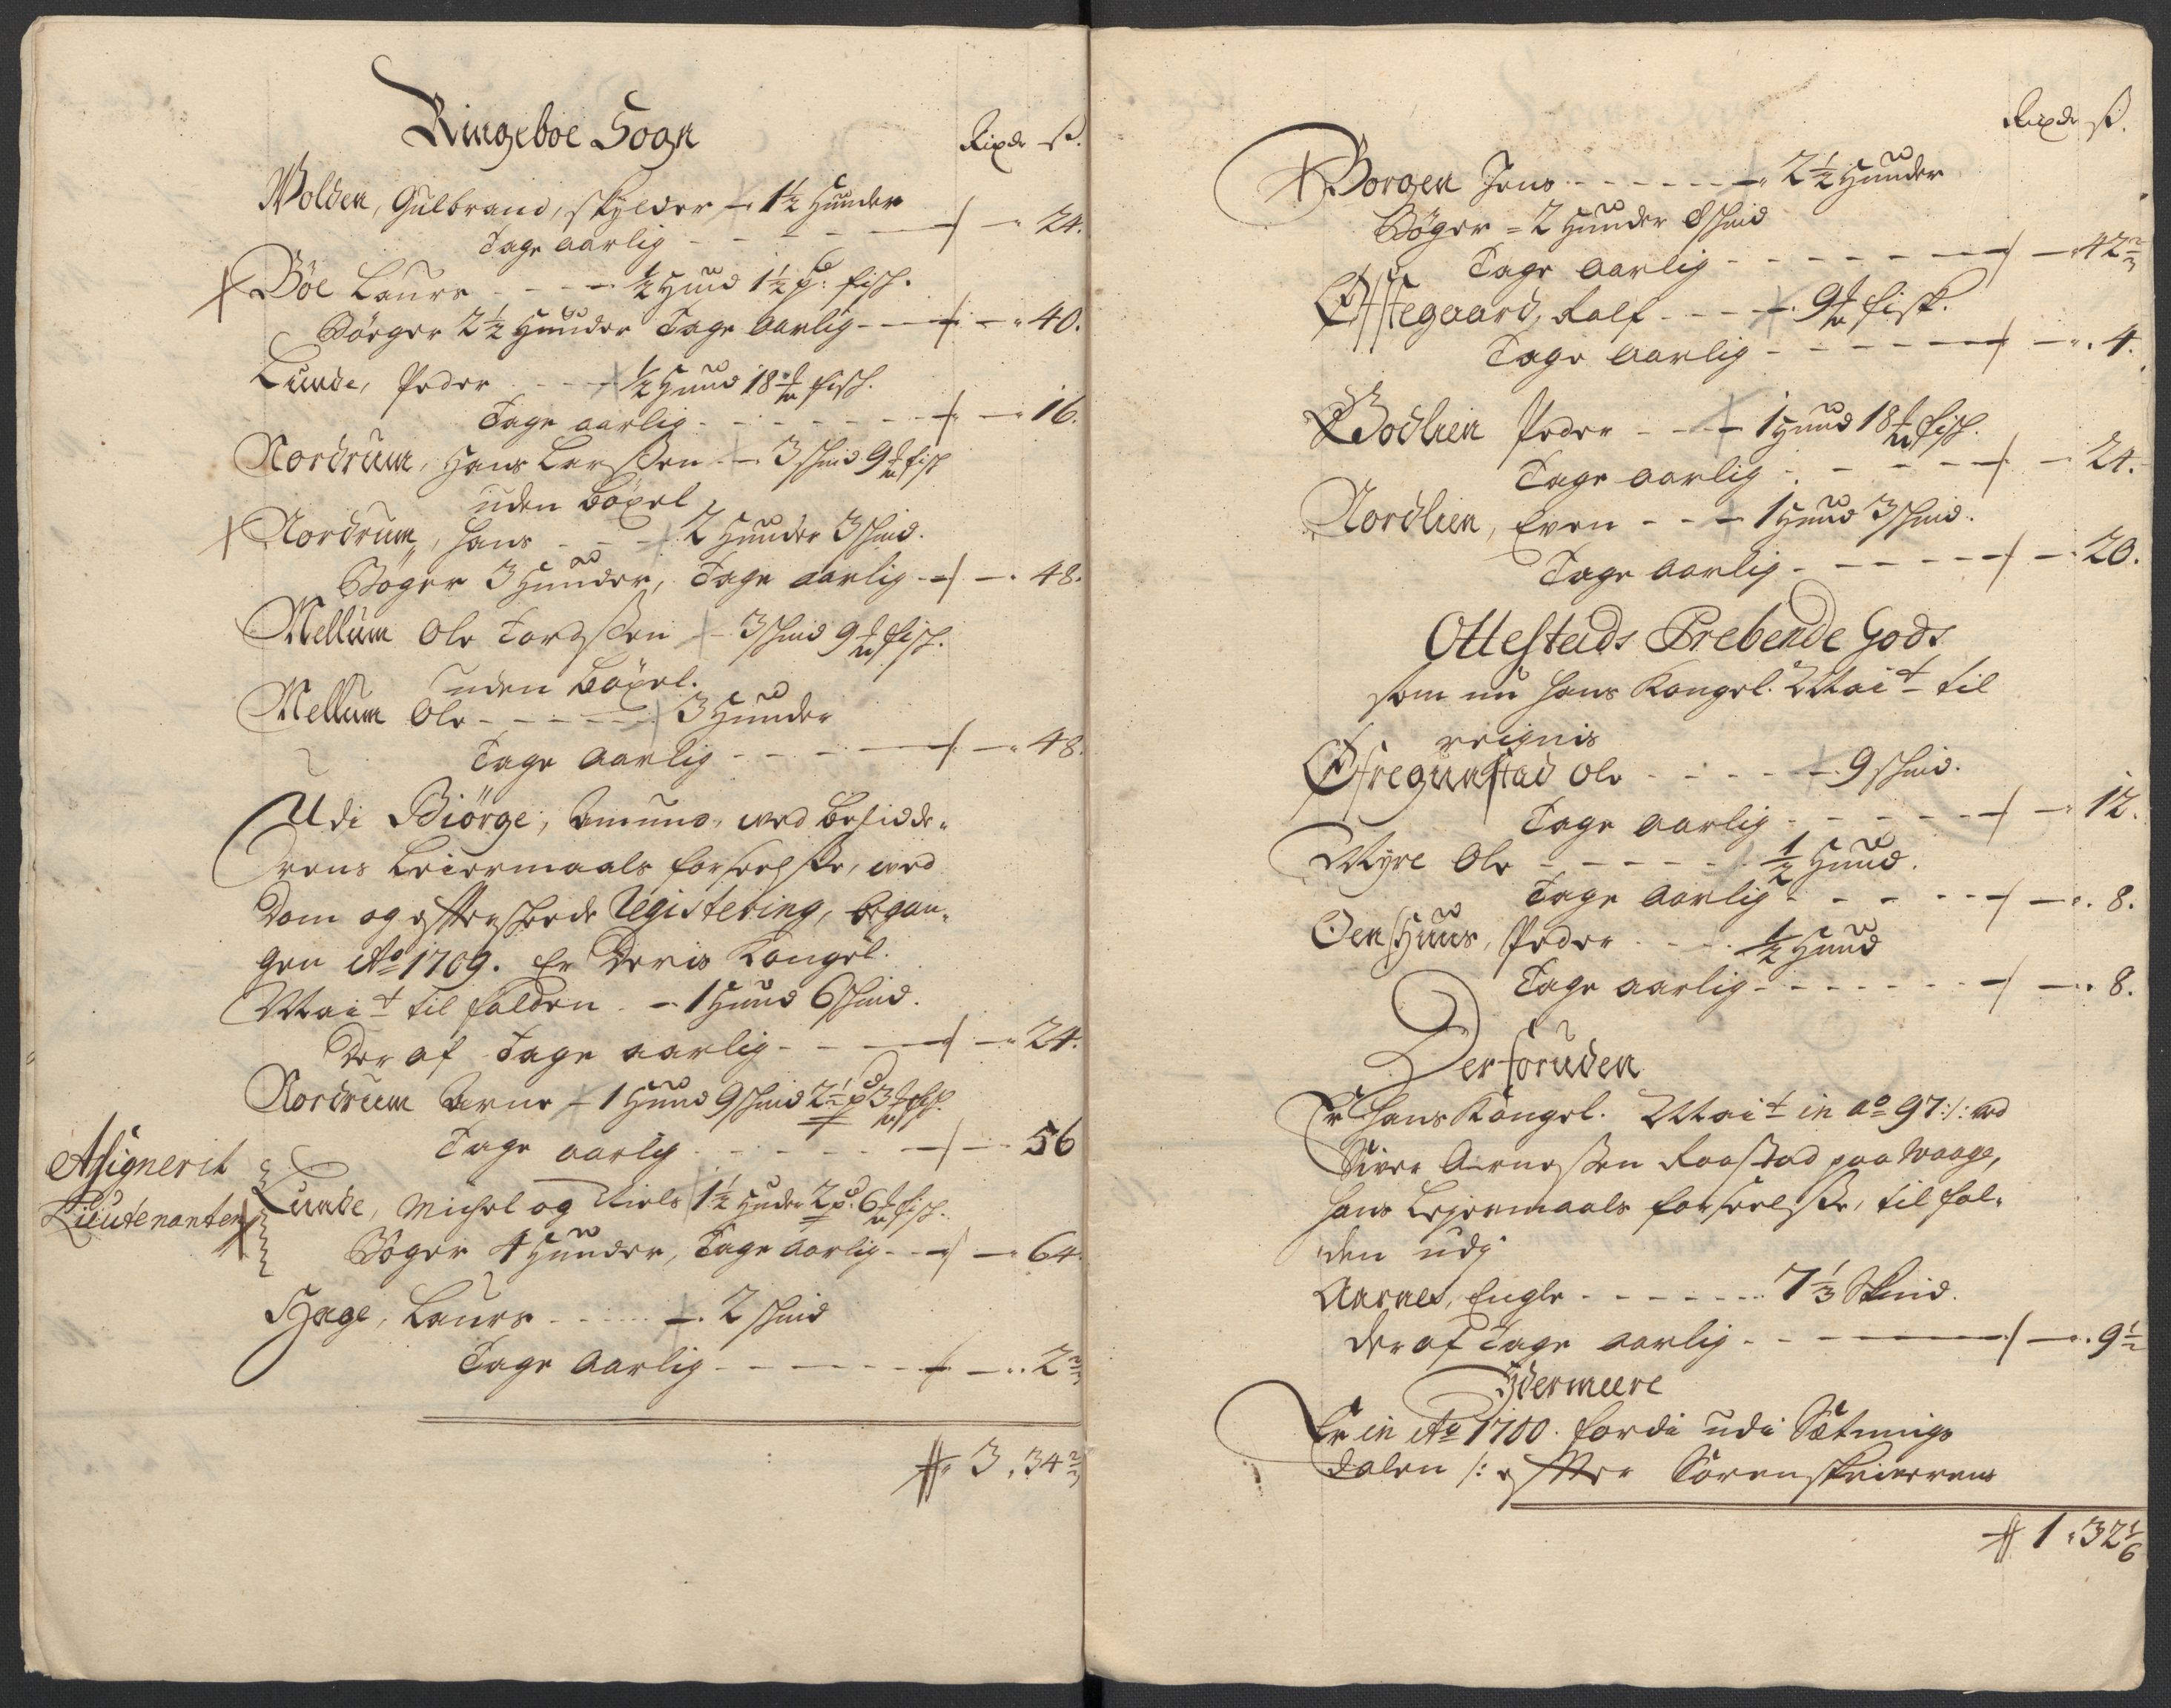 Ringeboe Sogn
Rixdr ß.
Wolden, Gulbrand, skylder - 1½ Hunder
Tage aarlig - - - - 24.
Böe Laurs - - - ½ Hud 1½ p: fisk.
Böxger 2½ Huder Tage Aarlig - - 40.
Lunde, Peder - - - ½ Hud 18 ℔ fisk.
Tage aarlig - - - - - 16.
Nordrum, Hans Larssen - 3 skind 9 ℔ fisk
uden Böxel
Nordrum, Hans - - 2 Huder 3 skind.
Böger 3 Huder, Tage aarlig - - 48.
Mellum Ole Tordssen - 3 skind 9 ℔ fisk.
uden Böxel.
Mellum Ole - - - - 3 Huder
Tage Aarlig - - - - 48.
Udi Biörge, Amund, ved Besidde-
rens Leiermaals forseelse, ved
Dom og effterskrefne Registering, began-
gen Ao 1709. Er Deris Kongel.
Mait til falden - 1 Hud 6 skind.
Der af Tage aarlig - - - 24.
Nordrum Arne - 1 Hud 9 skind 2½ p 3 ℔ fisk.
Tage aarlig - - - - 56
Assignerit
Lieutenanten
Lunde, Michel og Niels 1½ Huder 2 p. 6 ℔ fisk.
Böger 4 Huder, Tage Aarlig - - 64.
Hage, Laurs - - - 2 skind
Tage Aarlig - - - - - 2⅔
3. 34⅔
Rixdr ß.
Borgen Jens - - - - - - 2½ Huder
Böger = 2 Huder 8 skind
Tage Aarlig - - - - - - 42⅔
Øfstegaard, Rolf - - - - 9 ℔ fisk.
Tage Aarlig - - - - - 4.
Bodlien Peder - - - 1 Hud 18 ℔ fisk.
Tage aarlig - - - - - 24.
Nordlien, Even - - - 1 Hud 3 skind.
Tage aarlig - - - - - 20.
Ottestads Prebende Gods
som nu Hans Kongel. Mait til
reignis
Øfregunstad Ole - - - - - 9 skind.
Tage aarlig - - - - - 12.
Myre Ole - - - - - ½ Hud.
Tage Aarlig - - - - - 8.
Oenshuus, Peder - - - ½ Hud
Tage aarlig - - - - - - 8.
Derforuden
Er Hans Kongel. Mait in ao 97 /: ved
Siver Arnessen Raastad paa Waage,
Hans Lejermaals forseelse, til fal-
den udj
Aarnes, Engle - - - - - - 7⅓ Skind.
der af Tage aarlig - - - - - 9½
Ydermeere
Er in Ao 1700. fordi udi Sætnings
dalen /: effter Sorenskriverens
1. 32⅙